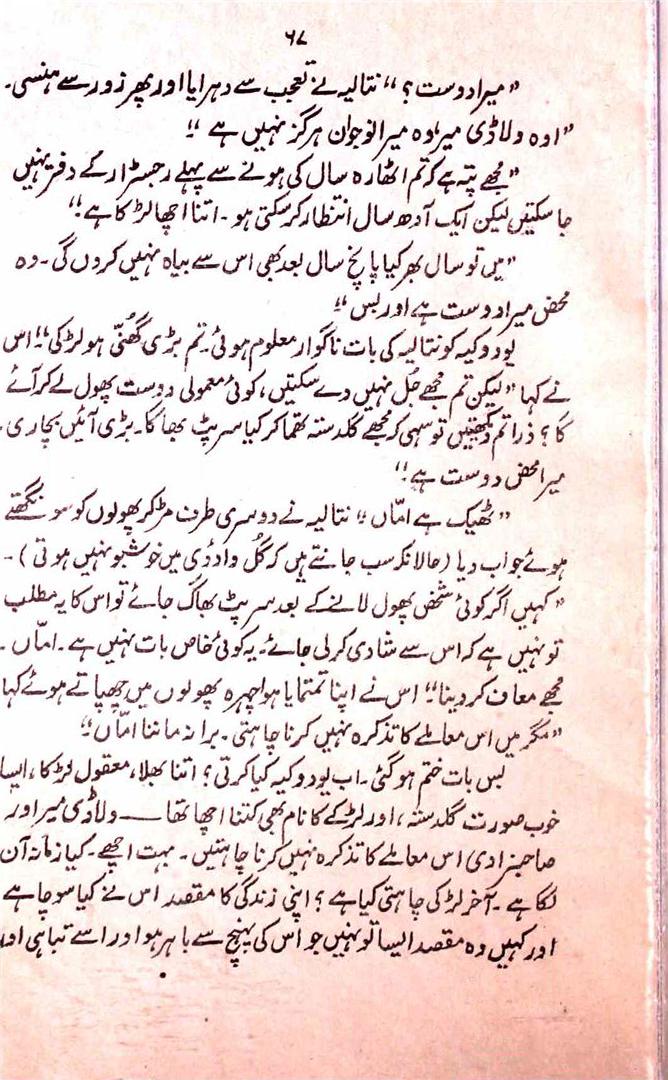 ۶۷
”میرا دوست؟“ نتالیہ نے تعجب سے دہرایا اور پھر زور سے ہنسی۔
”اوہ ولاڈی میر! وہ میرا نوجوان ہرگز نہیں ہے!!“
”مجھے پتہ ہے کہ تم اٹھارہ سال کی ہونے سے پہلے رجسٹرار کے دفتر نہیں
جا سکتیں لیکن ایک آدھ سال انتظار کر سکتی ہو۔ اتنا اچھا لڑکا ہے!“
”میں تو سال بھر کیا پانچ سال بعد بھی اس سے بیاہ نہیں کروں گی۔ وہ
محض میرا دوست ہے اور بس!!“
یودوکیہ کو نتالیہ کی بات ناگوار معلوم ہوئی۔ تم بڑی گھُنّی ہو لڑکی!“ اس
نے کہا ”لیکن تم مجھے جُل نہیں دے سکتیں، کوئی معمولی دوست پھول لے کر آئے
گا؟ ذرا تم دیکھتیں تو سہی کہ مجھے گلدستہ تھما کر کیا سرپٹ بھاگا۔ بڑی آئیں بچاری۔
میرا محض دوست ہے!“
”ٹھیک ہے امّاں!“ نتالیہ نے دوسری طرف مڑ کر پھولوں کو سونگھتے
ہوئے جواب دیا (حالانکہ سب جانتے ہیں کہ گُل وادڈی میں خوشبو نہیں ہوتی)۔
”کہیں اگر کوئی شخص پھول لانے کے بعد سرپٹ بھاگ جائے تو اس کا یہ مطلب
تو نہیں ہے کہ اس سے شادی کر لی جائے۔ یہ کوئی خاص بات نہیں ہے۔ امّاں۔
مجھے معاف کر دینا!“ اس نے اپنا تمتمایا ہوا چہرہ پھولوں میں چھپاتے ہوئے کہا
”مگر میں اس معاملے کا تذکرہ نہیں کرنا چاہتی۔ برا نہ ماننا امّاں!“
بس بات ختم ہو گئی۔ اب یودوکیہ کیا کرتی؟ اتنا بھلا، معقول لڑکا، ایسا
خوب صورت گلدستہ، اور لڑکے کا نام بھی کتنا اچھا تھا — ولاڈی میر اور
صاحبزادی اس معاملے کا تذکرہ نہیں کرنا چاہتیں۔ بہت اچھے۔ کیا زمانہ آن
لگا ہے۔ آخر لڑکی چاہتی کیا ہے؟ اپنی زندگی کا مقصد اس نے کیا سوچا ہے
اور کہیں وہ مقصد ایسا تو نہیں جو اس کی پہنچ سے باہر ہو اور اسے تباہی اور